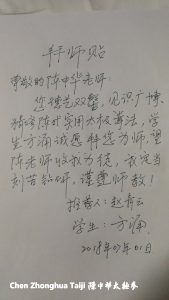 拜师贴
尊敬的陈中华老师:
您德艺双馨,见识广博,
精研陈式实用太极拳法,学
生方涌诚愿拜您为师,望
陈老师收我为徒,我定当
刻苦钻研,谨遵师教!
推荐人:赵青云
学生:方涌
2018年07年01日
Chen Zhonghua Taiji 陈中华太极拳